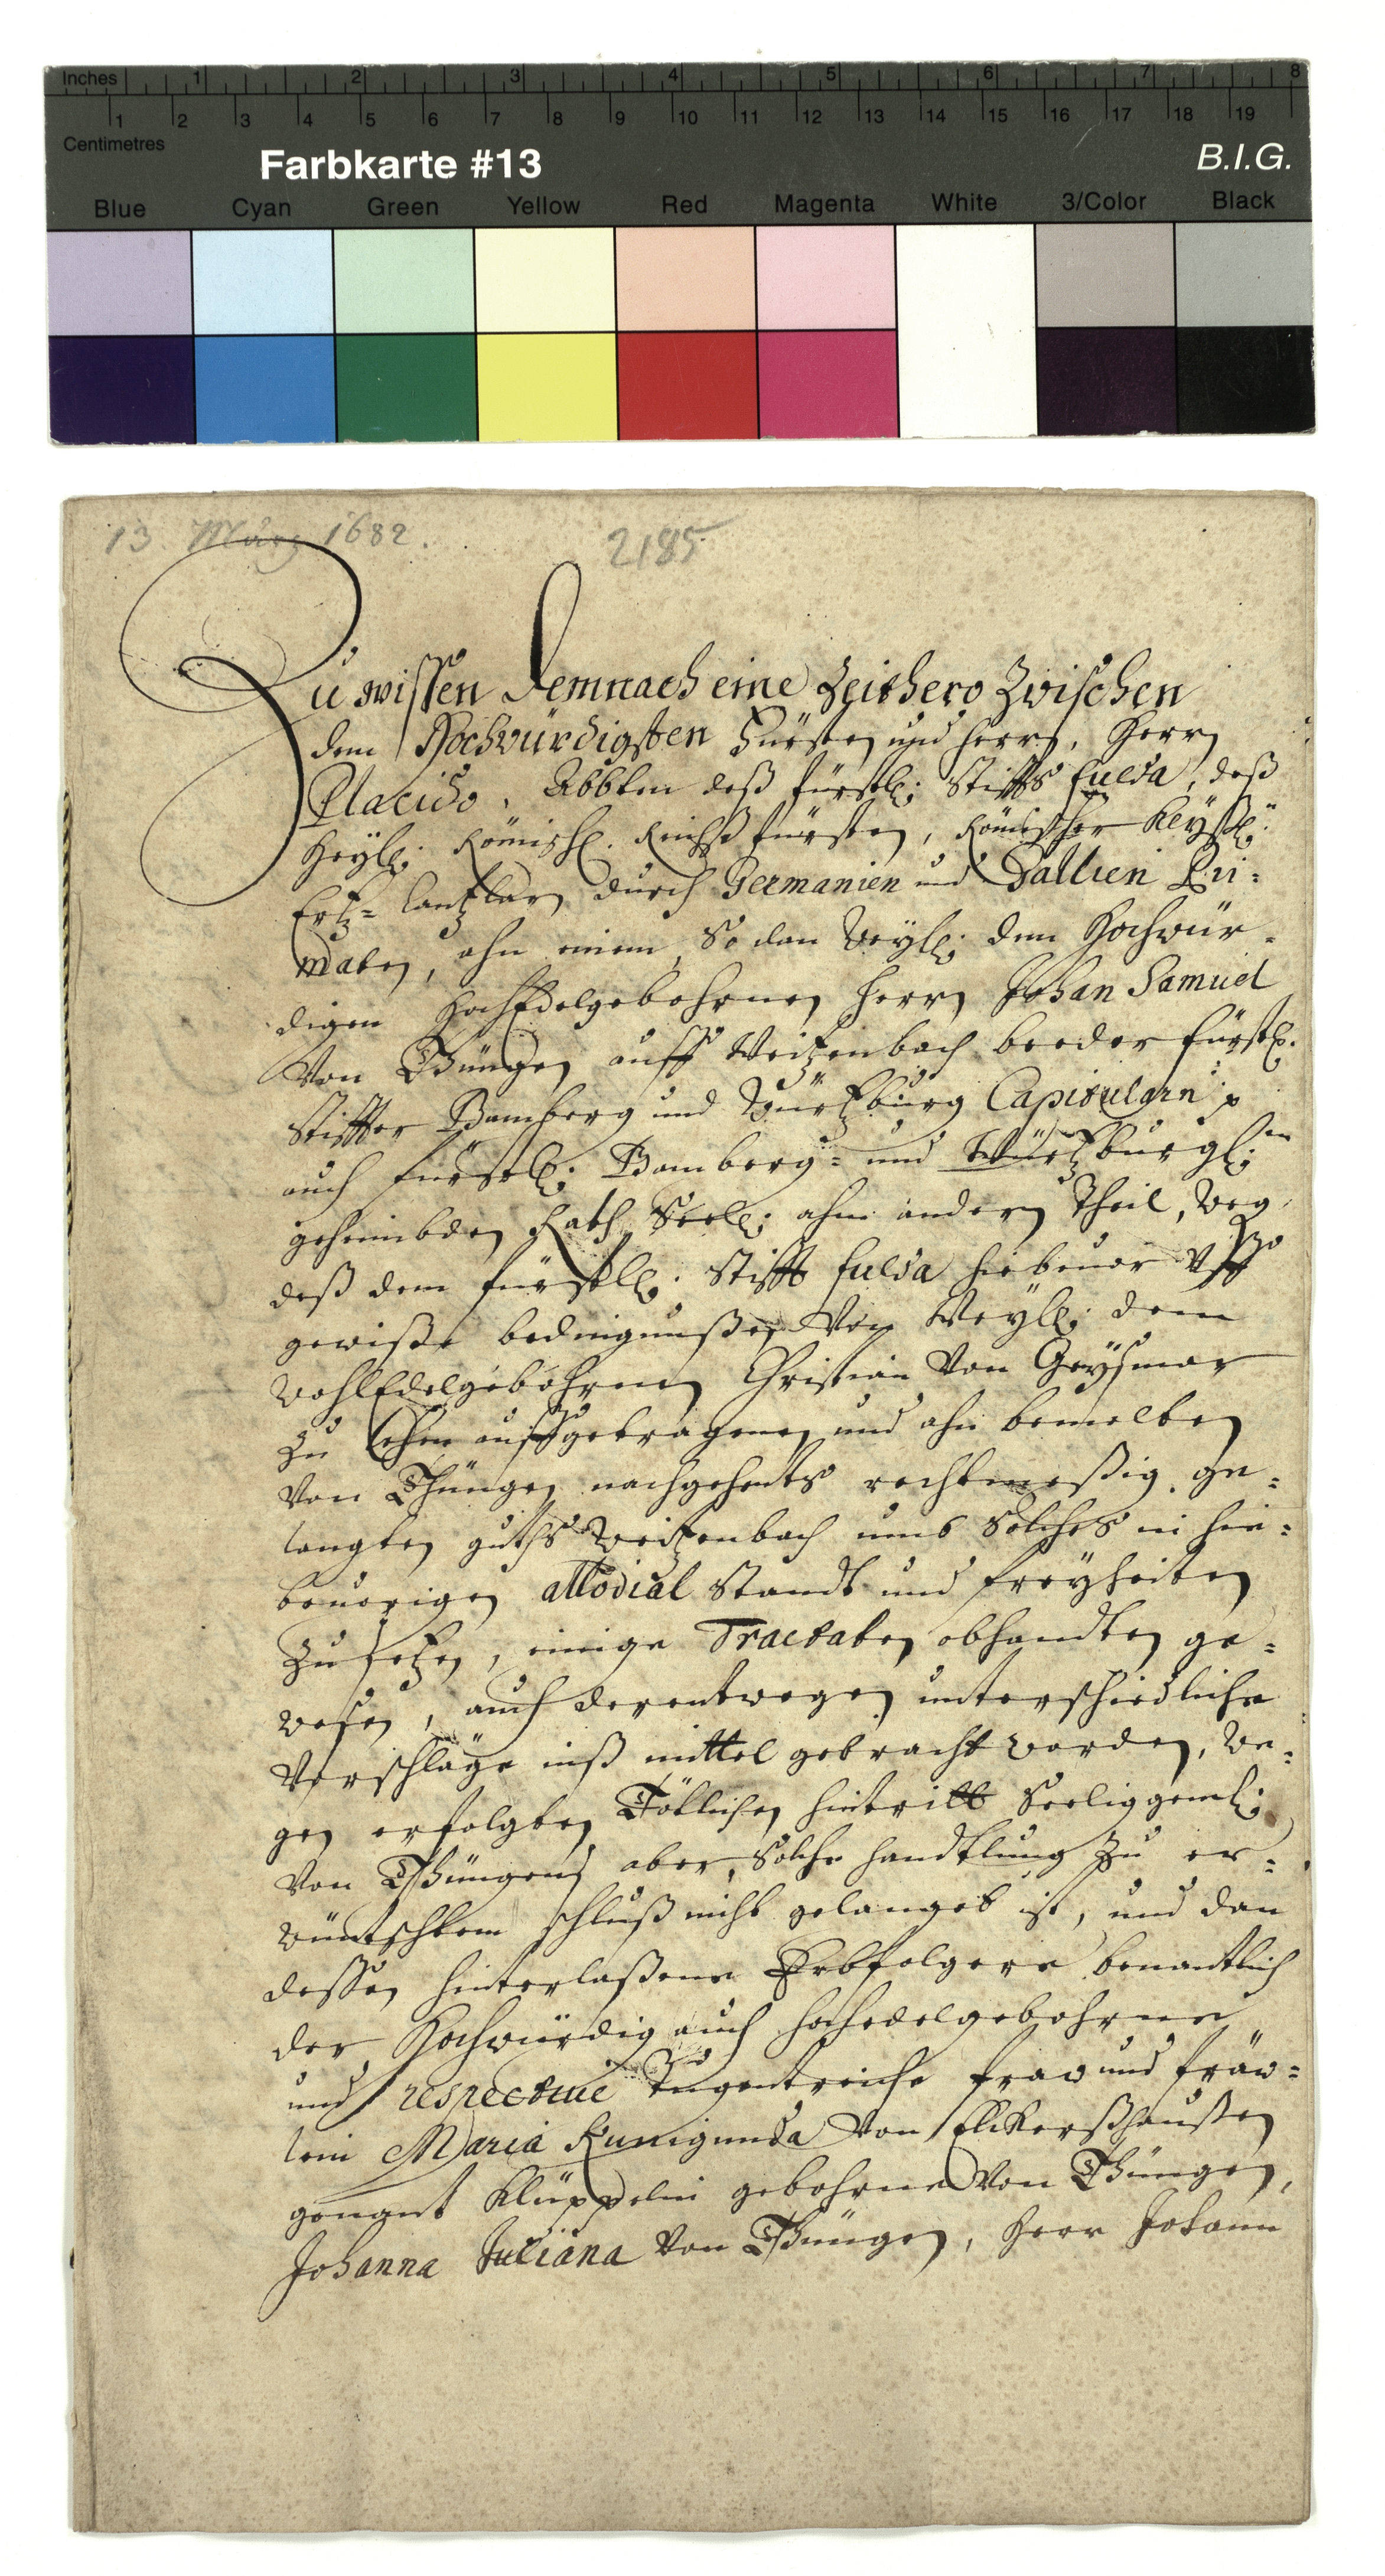 Inches 1 2 3 4 5 6 7 8
1 2 3 4 5 6 7 8 9 10 11 12 13 14 15 16 17 18 19
Centimetres
Farbkarte #13 B.I.G.
Blue Cyan Green Yellow Red Magenta White 3/Color Black
13 März 1682. 2185
Zu wissen demnach eine Zeithero Zwischen
dem Hochwürdigsten Fürsten und herrn, Herrn
Placido, Abbten deß fürstl: Stiffts Fulda, deß
Heyl: Römisch. Reichß fürsten, Römischer Keyßl:
Ertz= Cantzlarn durch Germanien und Gallien Pri=
maten, ahn einem, So dan Weyl: dem Hochwür=
digen HochEdelgebohrnen Herrn Johan Samuel
Von Thüngen auff Weitzenbach beeder fürstl.
Stiffter Bamberg und Würtzburg Capitularn p
auch fürstl: Bamberg= und Würtzburgl:en
geheimbden Rath Seel: ahm andern Theil, weg
deß dem fürstl: Stifft Fulda hiebeuor
gewiße bedingnußen Von Weyl: dem
WohlEdelgebohrnen Christian Von Geysmar
zu Lehen auffgetragenen und ahn bemelten
Von Thüngen nachgehents rechtmeßig ge=
langten guths Weitzenbach umb Solches in hie=
beuorigen allodial Standt und freyheiten
Zu setzen, einige Tractaten obhandten ge=
wesen, auch derentwegen unterschiedliche
Vorschläge inß mittel gebracht worden, we=
gen erfolgten Tötlichen hintritt Seeliggeml:
Von Thüngens aber, Solche handtlung zu er=
wüntschtem schluß nicht gelanget ist, und dan
dessen hinterlaßene Erbfolgere benantlich
der Hochwürdig auch hochedelgebohrne
und respective Tugentreiche fraw und fräw=
lein Maria Kunigunda Von Elckerßhaußen
genant Klüppelin gebohrne Von Thüngen,
Johanna Juliana Von Thüngen, Herr Johann